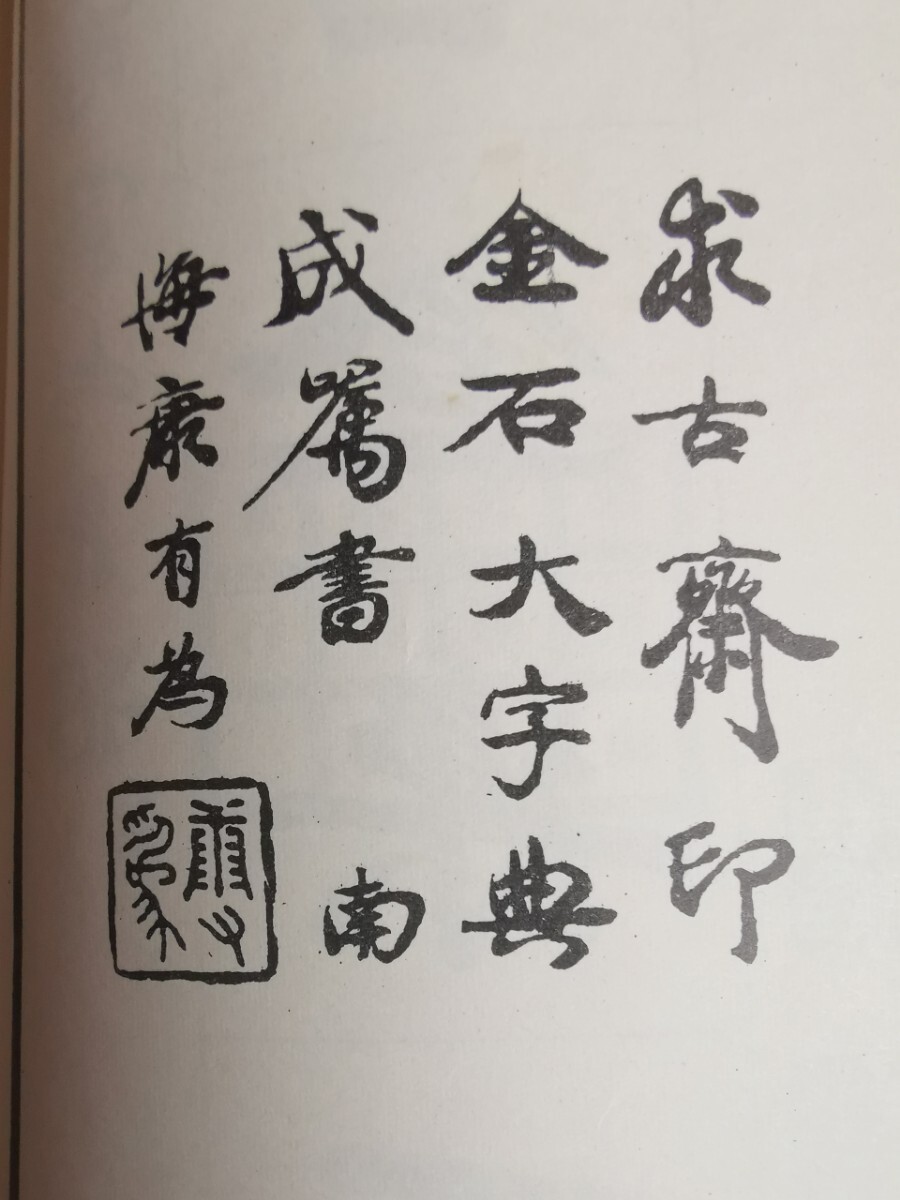 求古齋印
金石大字典
成屬書 南
海康有為
康有為